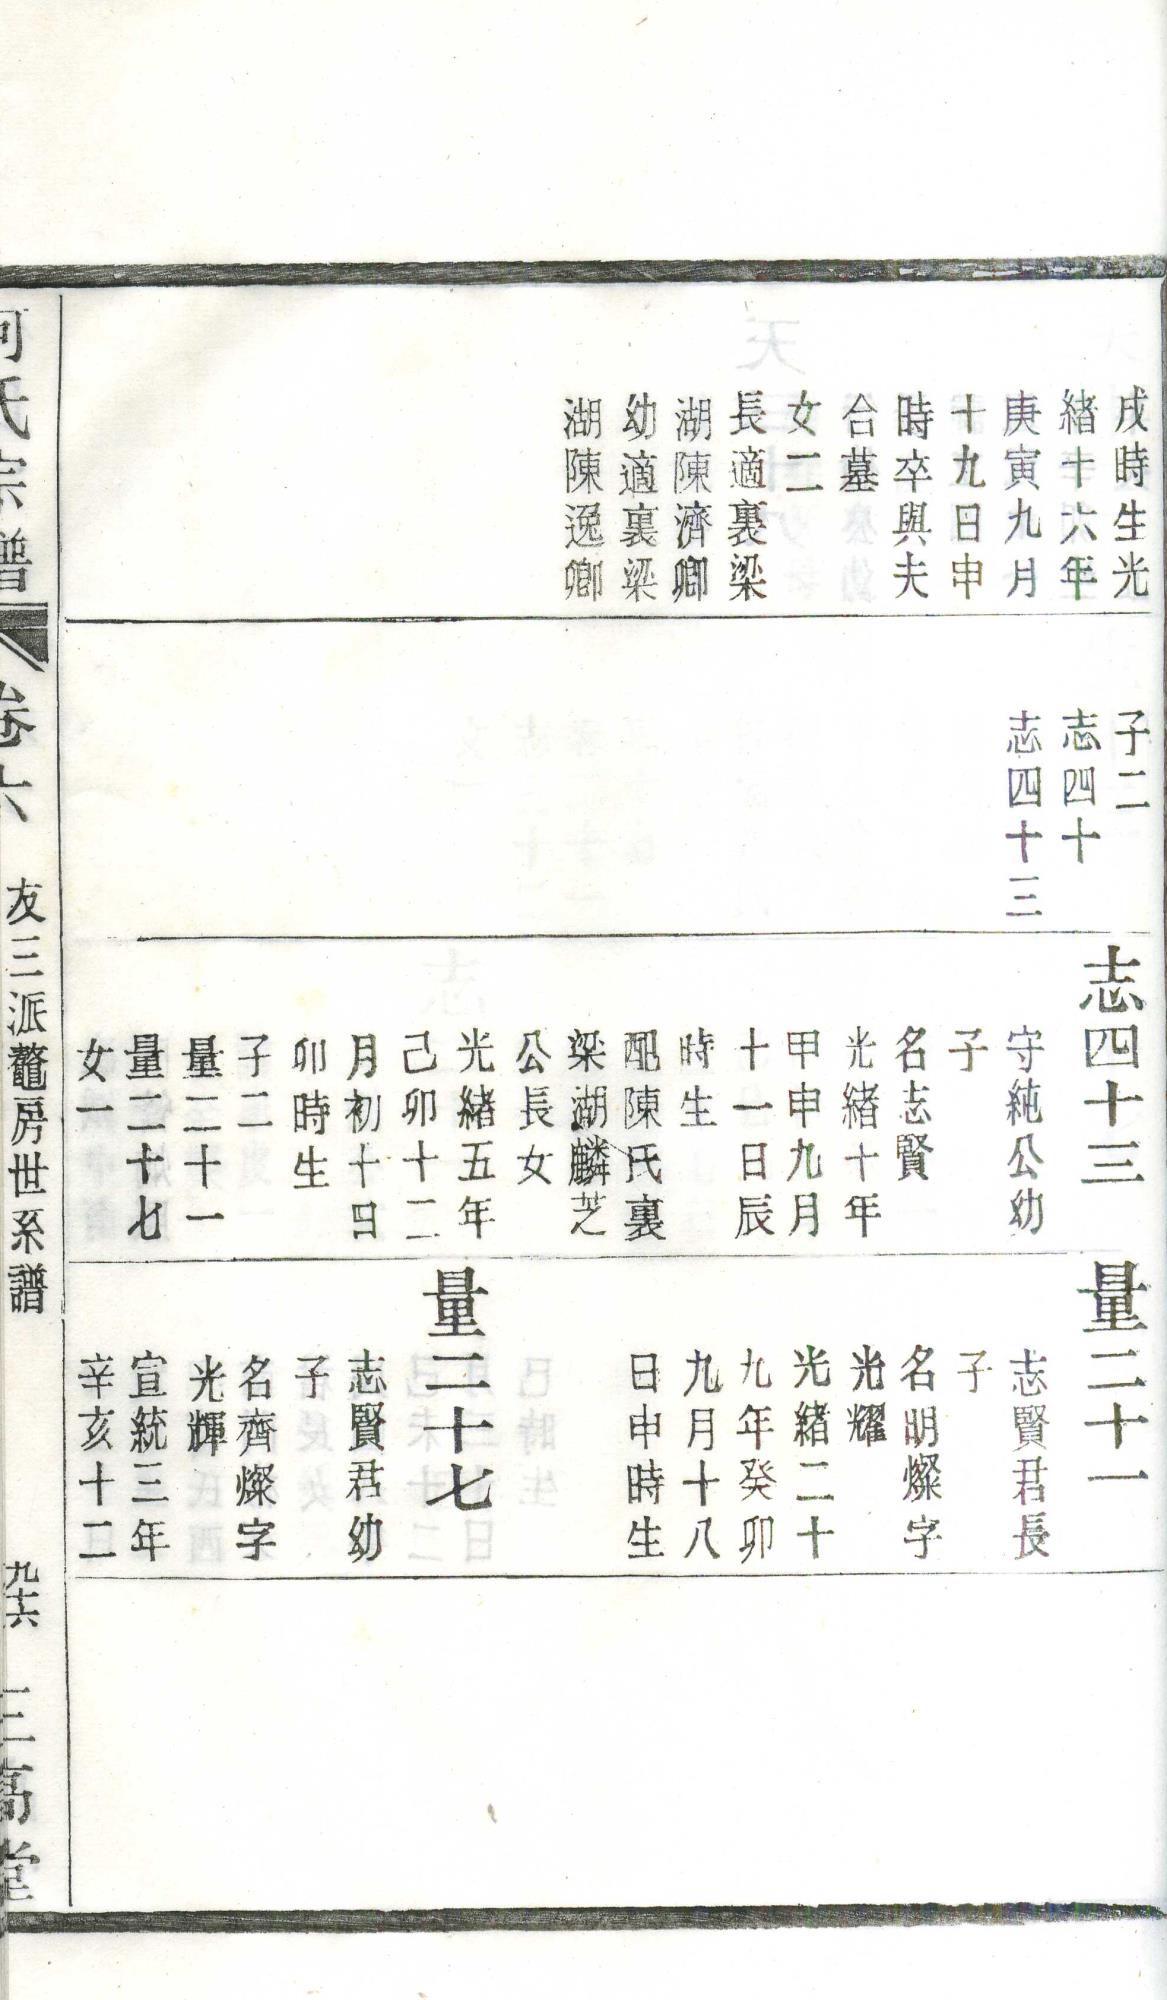 戌時生光
緒十六年
庚寅九月
十九日申
時卒與夫
合墓
女二
長適裏梁
湖陳濟卿
幼適裏梁
湖陳逸卿
子二
志四十
志四十三
志四十三
守純公幼
子
名志賢
光緒十年
甲申九月
十一日辰
時生
配陳氏裏
梁湖麟芝
公長女
光緒五年
己卯十二
月初十日
卯時生
子二
量二十一
量二十七
女一
量二十一
志賢君長
子
名明燦字
光耀
光緒二十
九年癸卯
九月十八
日申時生
量二十七
志賢君幼
子
名齊燦字
光輝
宣統三年
辛亥十二
氏宗譜
卷六
友三派鼇房世系譜
九十六
三高堂